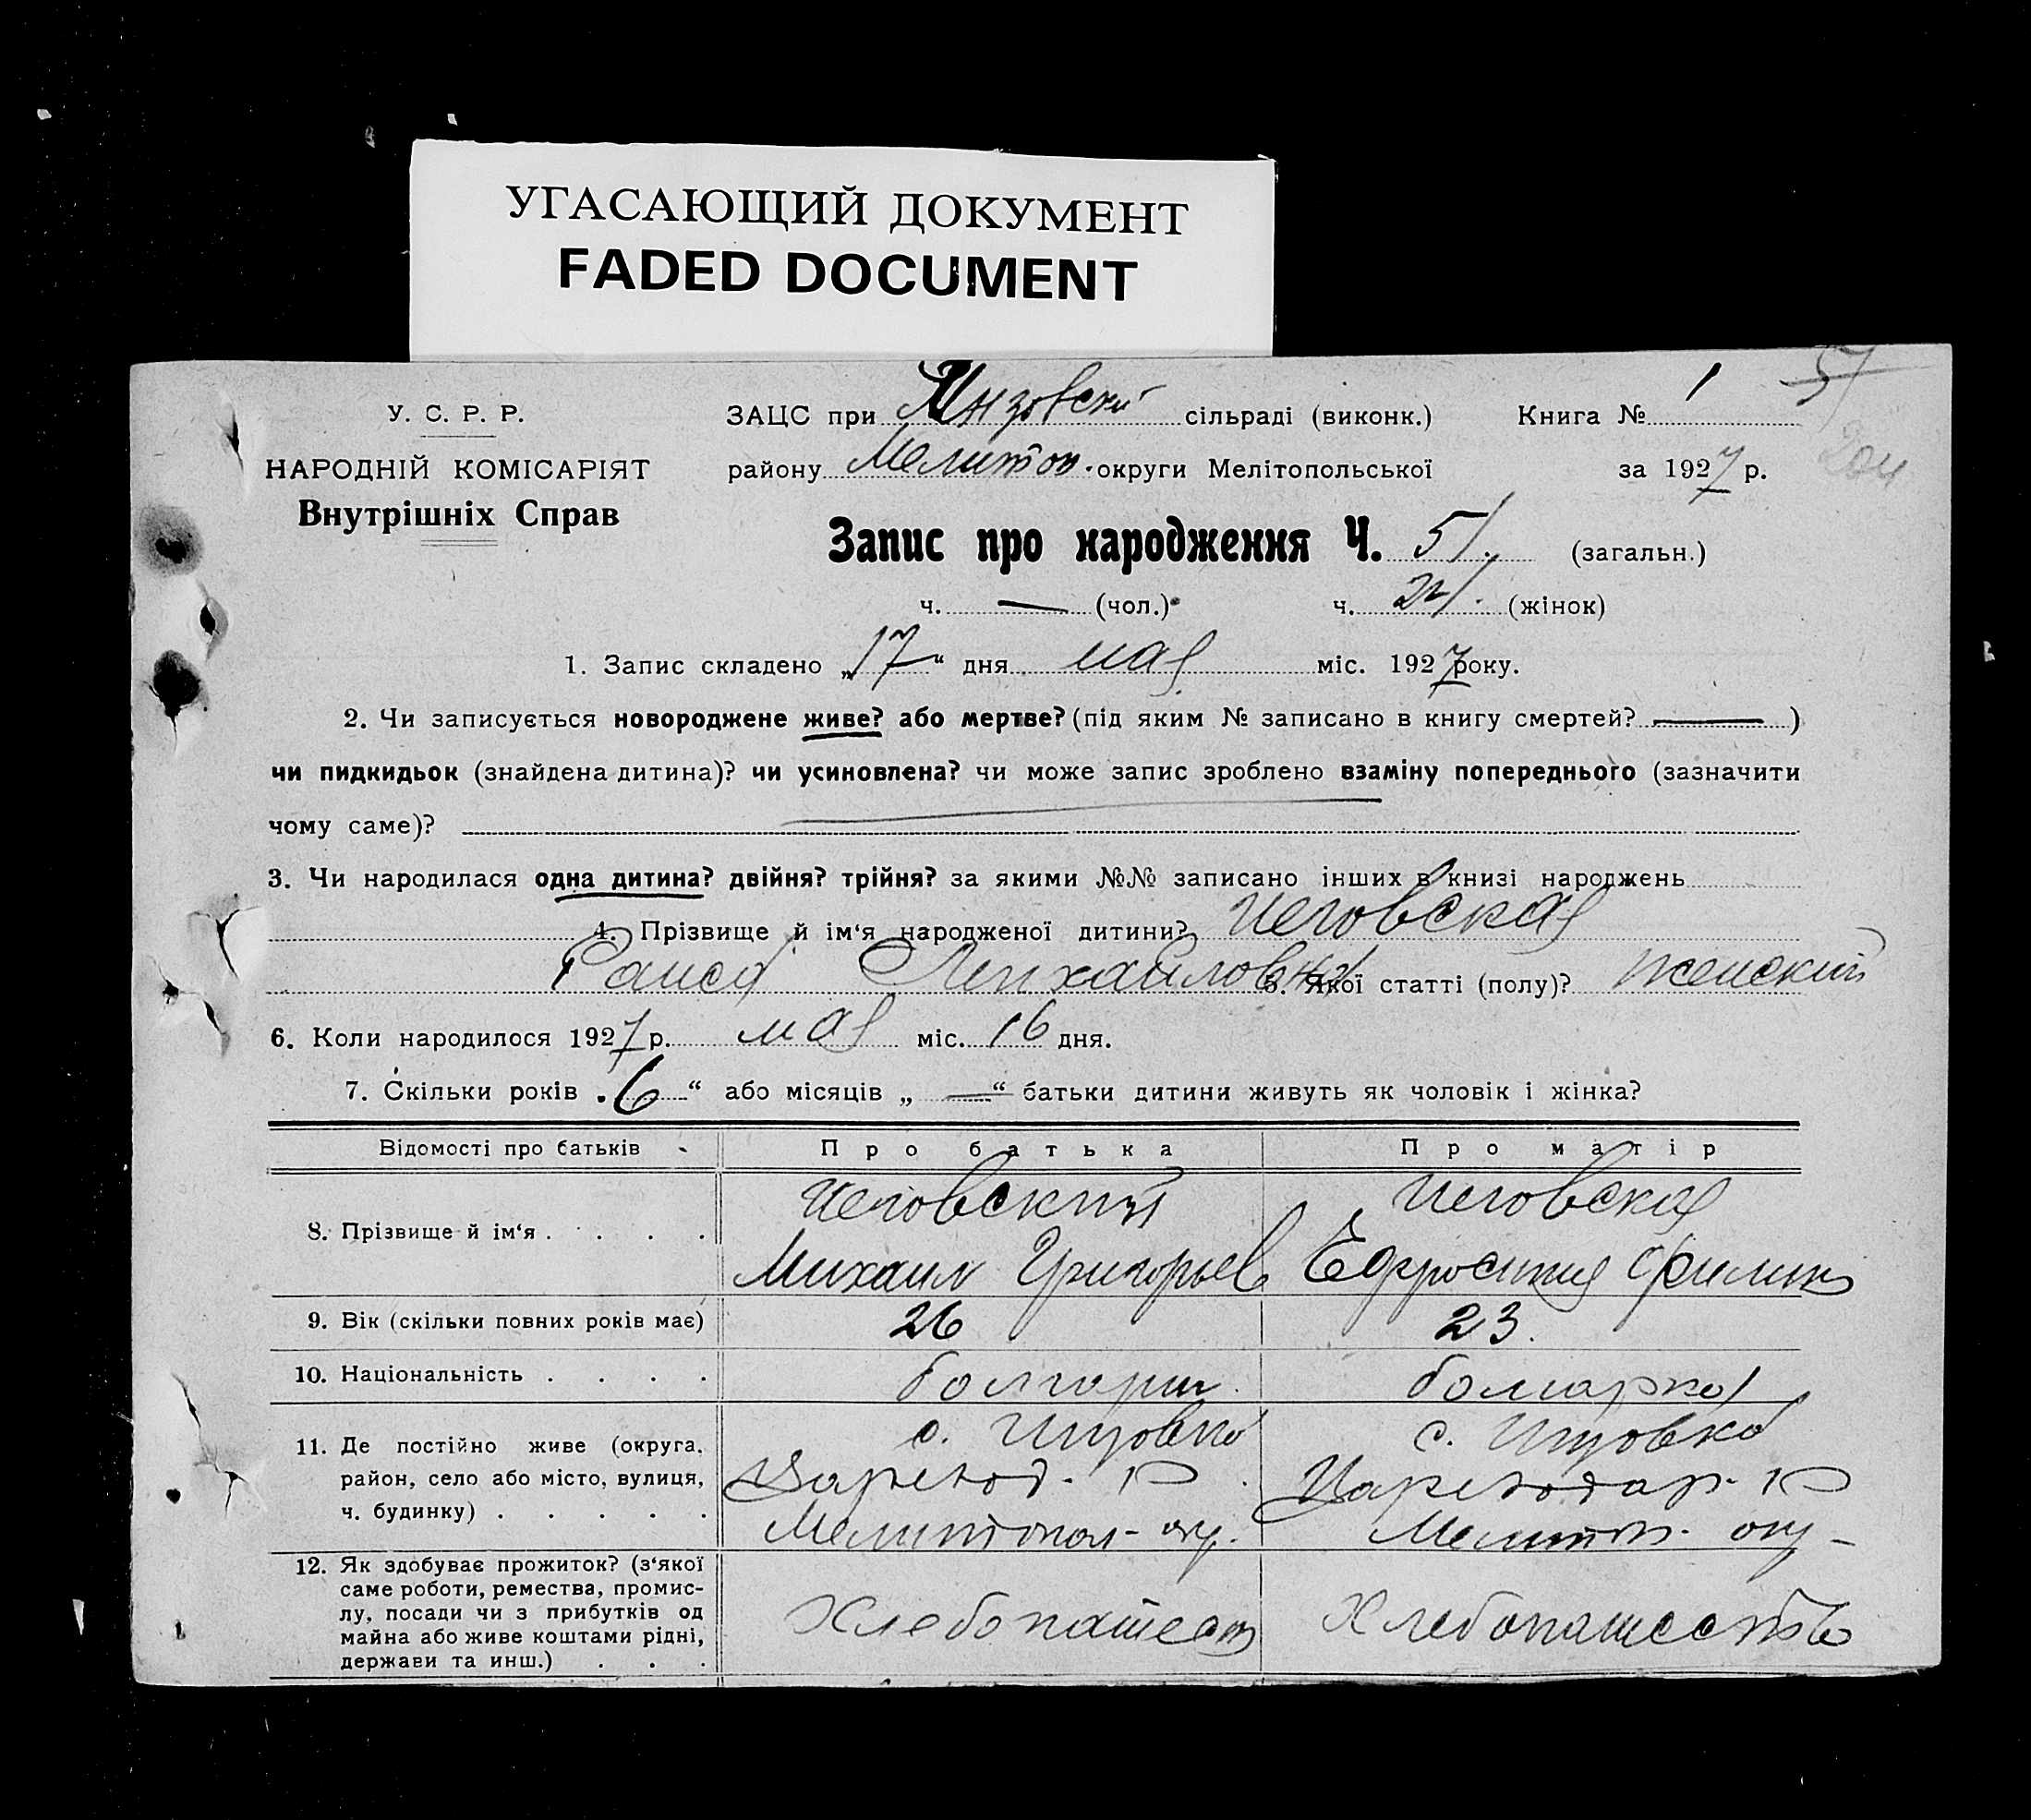 УГАСАЮЩИЙ ДОКУМЕНТ
FADED DOCUMENT
У. С. Р. Р.
НАРОДНІЙ КОМІСАРІЯТ
Внутрішніх Справ
ЗАЦС при Инзовской сільраді (виконк.) Книга № 1 51
району Мелитоп. округи Мелітопольської за 1927 р. 204
Запис про народження Ч. 51. (загальн.)
ч. — (чол.) ч. 21. (жінок)
1. Запис складено „17“ дня мая міс. 1927 року.
2. Чи записується новороджене живе? або мертве? (під яким № записано в книгу смертей? — )
чи пидкидьок (знайдена дитина)? чи усиновлена? чи може запис зроблено взаміну попереднього (зазначити
чому саме)?
3. Чи народилася одна дитина? двійня? трійня? за якими №№ записано інших в книзі народжень
4. Прізвище й ім‘я народженої дитини? Чеговская
Раиса Михайловна 5. Якої статті (полу)? женский
6. Коли народилося 1927 р. мая міс. 16 дня.
7. Скільки років „6“ або місяців „—“ батьки дитини живуть як чоловік і жінка?
Відомості про батьків Про батька Про матір
8. Прізвище й ім‘я . . . . Чеговский Чеговская
Михаил Григорьев Ефросиния Филип
9. Вік (скільки повних років має) 26 23.
10. Національність . . . . болгарин болгарка
11. Де постійно живе (округа, район, село або місто, вулиця, ч. будинку) . . . . .
с. Инзовка с. Инзовка
Царевод. р Цареводар. р
Мелитопол- окр. Мелитоп. окр-
12. Як здобуває прожиток? (з‘якої
саме роботи, ремества, промис-
лу, посади чи з прибутків од
майна або живе коштами рідні,
держави та инш.) . . .
Хлебопашест Хлебопашество